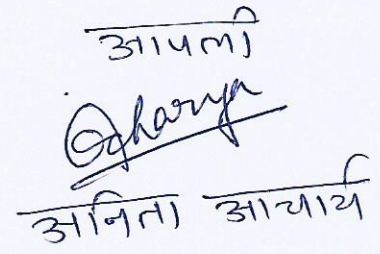 आपली
Acharya
अनिता आचार्य